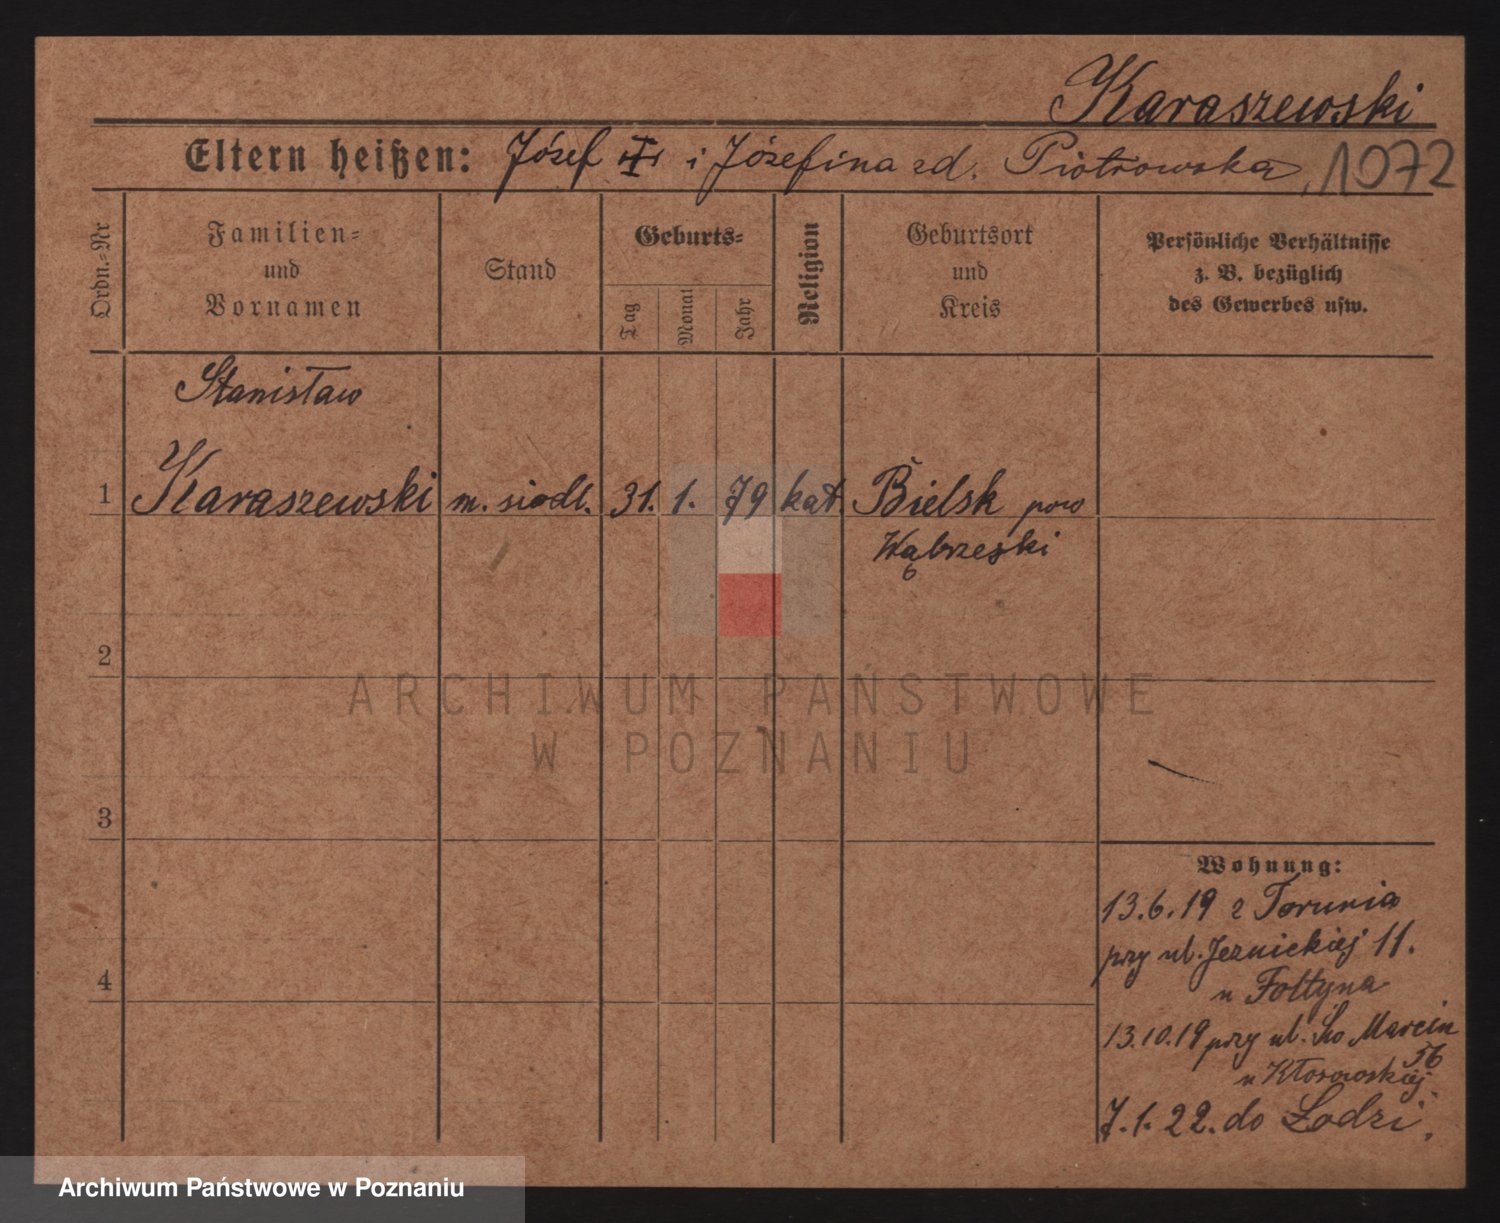 Karaszewski
Eltern heißen: Józef i Józefina zd. Piotrowska, 1072
Ordn.-Nr
Familien-
und
Vornamen
Stand
Geburts-
Tag
Monat
Jahr
Religion
Geburtsort
und
Kreis
Persönliche Verhältnisse
z. B. bezüglich
des Gewerbes usw.
Stanisław
1 Karaszewski m. siodl. 31. 1. 79 kat. Bielsk pow
Wąbrzeski
2
3
4
Wohnung:
13.6.19 z Torunia
przy ul. Jeznickiej 11.
u Foltyna
13.10.19 przy ul. Św Marcin
56
u Kłosowskiej
7.1.22. do Łodzi.
ARCHIWUM PAŃSTWOWE
W POZNANIU
Archiwum Państwowe w Poznaniu